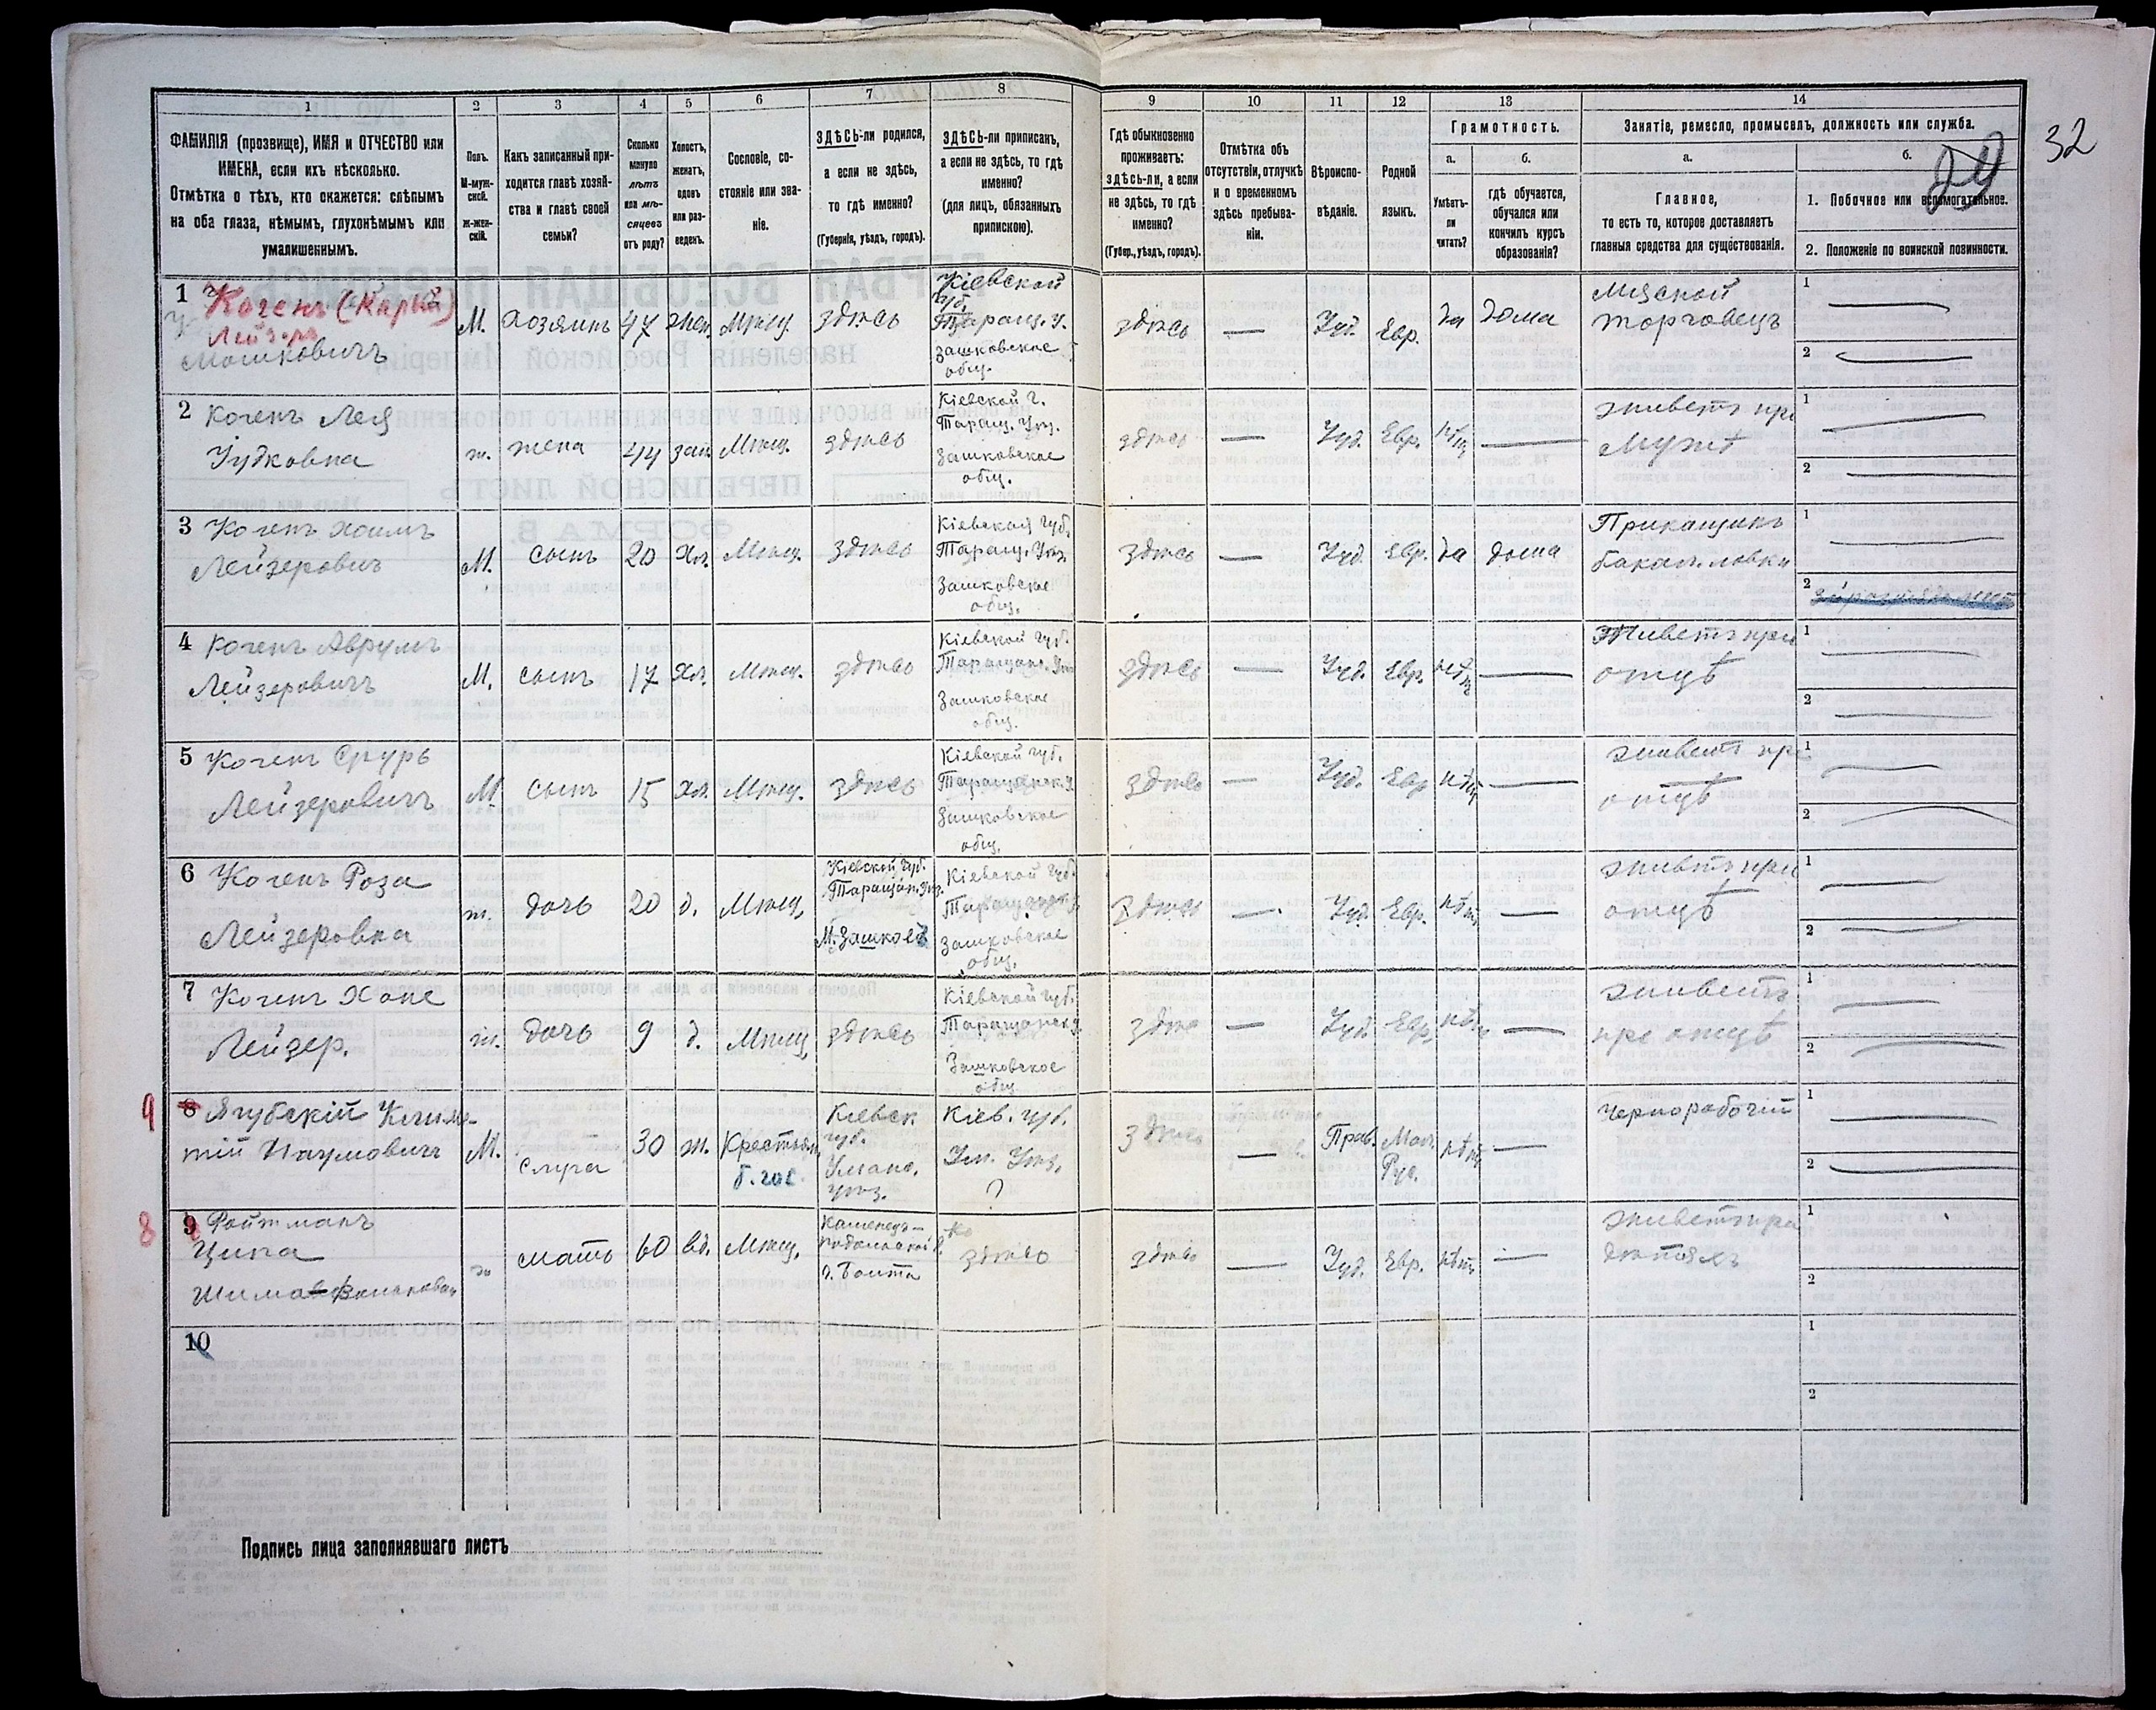 32
29
1
2
3
4
5
6
7
8
9
10
11
12
13
14
ФАМИЛІЯ (прозвище), ИМЯ и ОТЧЕСТВО или
ИМЕНА, если ихъ нѣсколько.
Отмѣтка о тѣхъ, кто окажется: слѣпымъ
на оба глаза, нѣмымъ, глухонѣмымъ или
умалишеннымъ.
Полъ.
М-муж-
ской.
ж-жен-
скій.
Какъ записанный при-
ходится главѣ хозяй-
ства и главѣ своей
семьи?
Сколько
минуло
лѣтъ
или мѣ-
сяцевъ
отъ роду?
Холостъ,
женатъ,
вдовъ
или раз-
веденъ.
Сословіе, со-
стояніе или зва-
ніе.
ЗДѢСЬ-ли родился,
а если не здѣсь,
то гдѣ именно?
(Губернія, уѣздъ, городъ).
ЗДѢСЬ-ли приписанъ,
а если не здѣсь, то гдѣ
именно?
(для лицъ, обязанныхъ
припискою).
Гдѣ обыкновенно
проживаетъ:
здѣсь-ли, а если
не здѣсь, то гдѣ
именно?
(Губер., уѣздъ, городъ).
Отмѣтка объ
отсутствіи, отлучкѣ
и о временномъ
здѣсь пребыва-
ніи.
Вѣроиспо-
вѣданіе.
Родной
языкъ.
Грамотность.
а.
Умѣетъ-
ли
читать?
б.
гдѣ обучается,
обучался или
кончилъ курсъ
образованія?
Занятіе, ремесло, промыселъ, должность или служба.
а.
Главное,
то есть то, которое доставляетъ
главныя средства для существованія.
б.
1. Побочное или вспомогательное.
2. Положеніе по воинской повинности.
1 Когенъ (Карый)
Лейзеръ
Мошковичъ
М. хозяинъ 47 жен. Мѣщ. здѣсь
Кіевской
губ.
Таращ. у.
Зашковское
общ.
здѣсь — Іуд. Евр. да дома
Мясной
торговецъ
1
2
2 Когенъ Лея
Іудковна
ж. жена 44 зам. Мѣщ. здѣсь
Кіевской г.
Таращ. Уѣз.
Зашковское
общ.
здѣсь — Іуд. Евр. нѣтъ —
живетъ при
мужѣ
1
2
3 Когенъ Хаимъ
Лейзеровичъ
М. сынъ 20 хол. Мѣщ. здѣсь
Кіевской губ.
Таращ. Уѣз.
Зашковское
общ.
здѣсь — Іуд. Евр. да дома
Прикащикъ
бакал. лавки
1
2
4 Когенъ Аврумъ
Лейзеровичъ
М. сынъ 17 хол. Мѣщ. здѣсь
Кіевской губ.
Таращан. Уѣз.
Зашковское
общ.
здѣсь — Іуд. Евр. нѣтъ —
Живетъ при
отцѣ
1
2
5 Когенъ Сруръ
Лейзеровичъ
М. сынъ 15 хол. Мѣщ. здѣсь
Кіевской губ.
Таращанск. у.
Зашковское
общ.
здѣсь — Іуд. Евр нѣтъ —
живетъ при
отцѣ
1
2
6 Когенъ Роза
Лейзеровна
ж. дочь 20 д. Мѣщ.
Кіевской губ.
Таращан. Уѣз.
М. Зашковъ
Кіевской губ.
Таращан. у.
Зашковское
общ.
здѣсь — Іуд. Евр. нѣтъ —
живетъ при
отцѣ
1
2
7 Когенъ Хане
Лейзер.
ж. дочь 9 д. Мѣщ. здѣсь
Кіевской губ.
Таращанск. у.
Зашковское
общ.
здѣсь — Іуд. Евр. нѣтъ —
живетъ
при отцѣ
1
2
9 8 Ягубскій
Наумовичъ
М. слуга 30 ж. Крестьян.
б. гос.
Кіевск.
губ.
Уманс.
уѣз.
Кіев. губ.
Ум. Уѣз.
?
здѣсь — Прав. Мал.
Рус. нѣтъ —
Чернорабочій
1
2
8 9 Ройтманъ
Ципа
ж. мать 60 вд. Мѣщ.
Каменецъ-
Подольской г.
г. Балта
здѣсь
здѣсь — Іуд. Евр. нѣтъ —
живетъ при
дѣтяхъ
1
2
10
1
2
Подпись лица заполнявшаго листъ